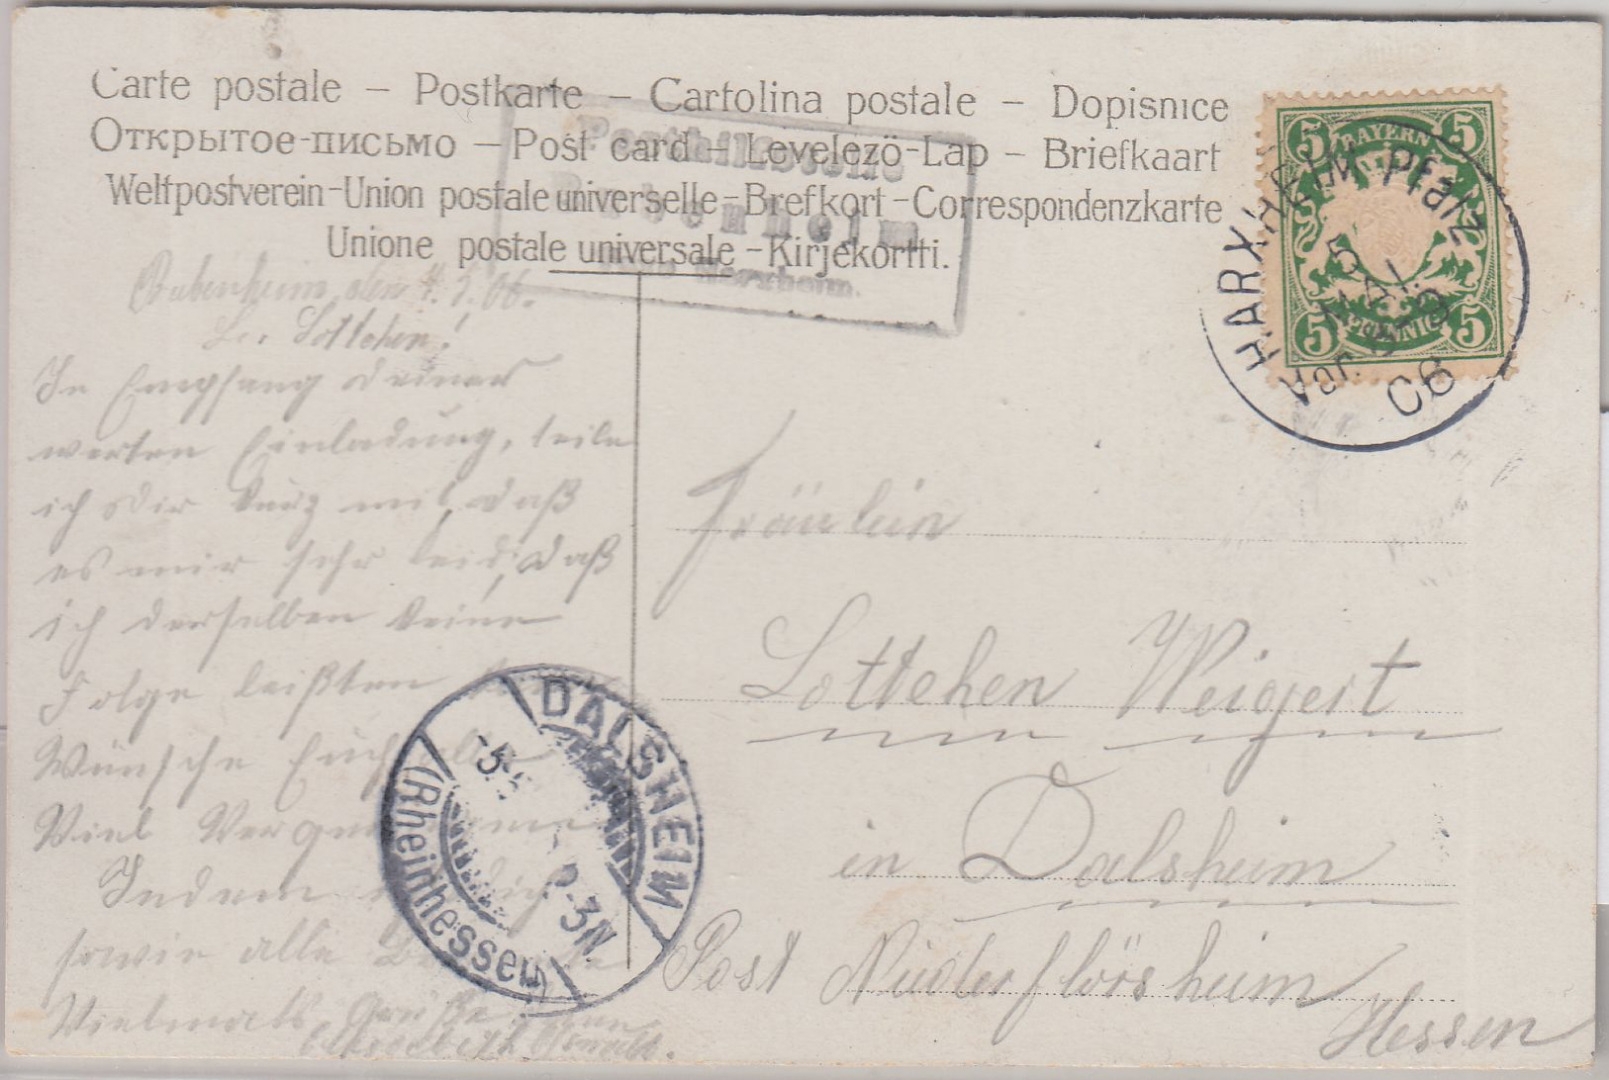 Carte postale – Postkarte – Cartolina postale – Dopisnice
Открытое-письмо – Post card – Levelezö-Lap – Briefkaart
Weltpostverein-Union postale universelle-Brefkort-Correspondenzkarte
Unione postale universale -Kirjekortti.
Posthilfstelle
Bubenheim
Harxheim.
BAYERN
5 5
5 5
PFENNIG
HARXHEIM Pfalz
5
MAI.
Vor.
06
Bubenheim, den 4.5.06.
Lottchen!
In Empfang deiner
werten Einladung, teile
ich dir kurz mit, daß
es mir sehr leid, daß
ich derselben keine
Folge leißten
Wünsche Euch alle
Viel
Indem
sowie alle
Vielmals Grüße
Elisabeth
DALSHEIM
(Rheinhessen)
2-3N.
Fräulein
Lottchen Weigert
in Dalsheim
Post Niederflörsheim
Hessen